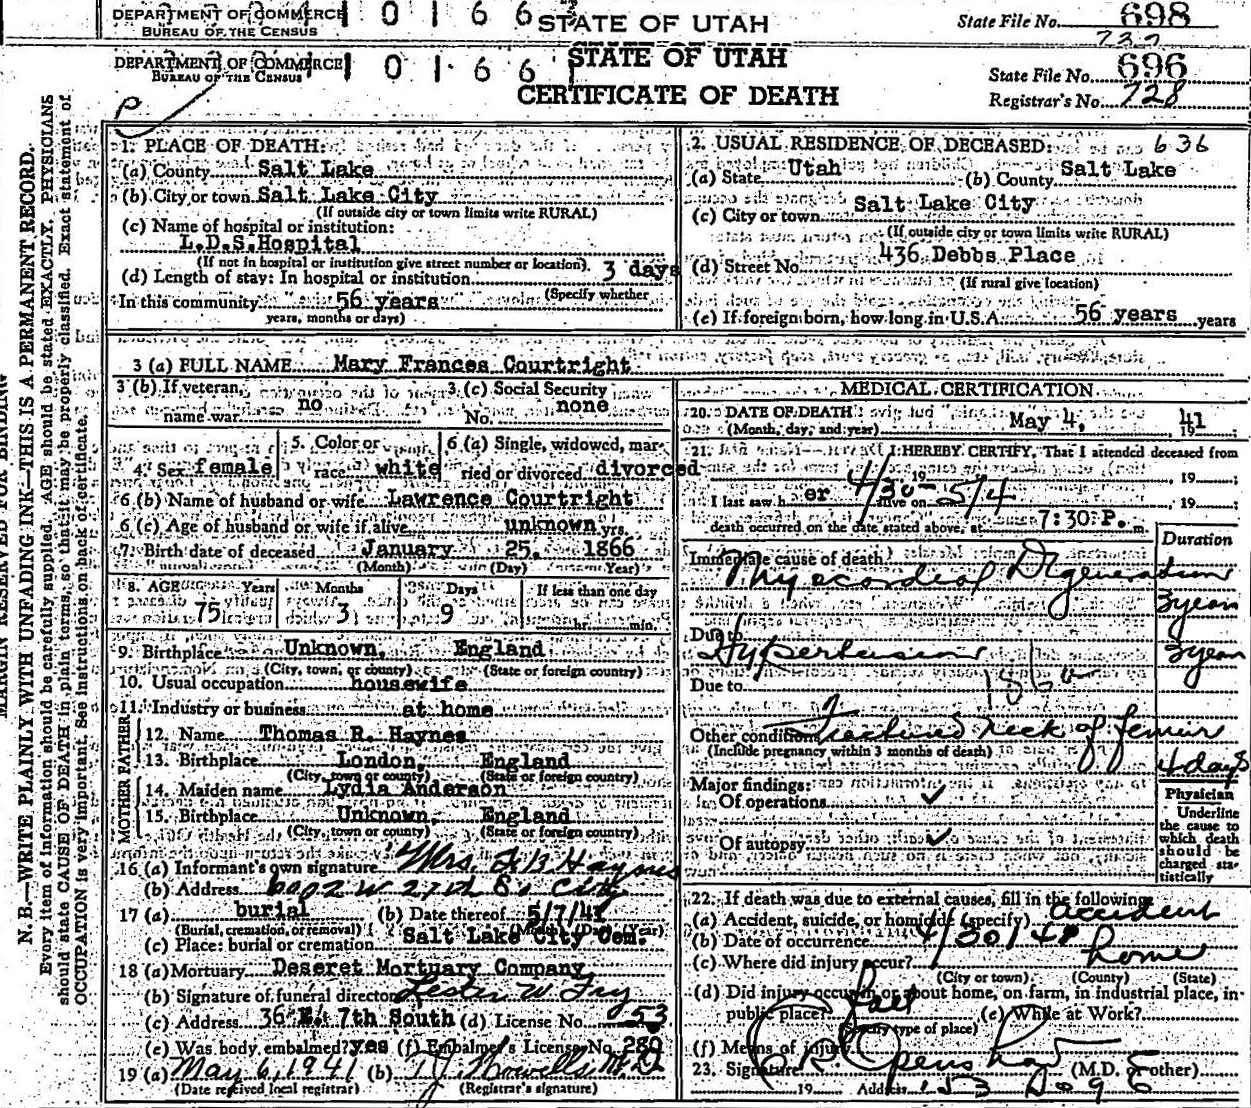 DEPARTMENT OF COMMERCE
BUREAU OF THE CENSUS
1 0 1 6 6
STATE OF UTAH
State File No. 698
737
DEPARTMENT OF COMMERCE
BUREAU OF THE CENSUS
1 0 1 6 6
STATE OF UTAH
CERTIFICATE OF DEATH
State File No. 696
Registrar's No. 728
MARGIN RESERVED FOR BINDING
N. B.—WRITE PLAINLY WITH UNFADING INK—THIS IS A PERMANENT RECORD.
Every item of information should be carefully supplied. AGE should be stated EXACTLY. PHYSICIANS
should state CAUSE OF DEATH in plain terms, so that it may be properly classified. Exact statement of
OCCUPATION is very important. See instructions on back of certificate.
1. PLACE OF DEATH:
(a) County Salt Lake
(b) City or town Salt Lake City
(If outside city or town limits write RURAL)
(c) Name of hospital or institution:
L.D.S. Hospital
(If not in hospital or institution give street number or location)
(d) Length of stay: In hospital or institution 3 days
(Specify whether
In this community 56 years
years, months or days)
2. USUAL RESIDENCE OF DECEASED: 636
(a) State Utah (b) County Salt Lake
(c) City or town Salt Lake City
(If outside city or town limits write RURAL)
(d) Street No. 436 Debbs Place
(If rural give location)
(e) If foreign born, how long in U.S.A. 56 years years
3 (a) FULL NAME Mary Frances Courtright
3 (b) If veteran, name war no
3 (c) Social Security No. none
4. Sex female
5. Color or race white
6 (a) Single, widowed, married or divorced divorced
6 (b) Name of husband or wife Lawrence Courtright
6 (c) Age of husband or wife if alive unknown yrs.
7. Birth date of deceased January 25, 1866
(Month) (Day) (Year)
8. AGE Years Months Days If less than one day
75 3 9 hr. min.
9. Birthplace Unknown, England
(City, town, or county) (State or foreign country)
10. Usual occupation housewife
11. Industry or business at home
FATHER
12. Name Thomas R. Haynes
13. Birthplace London, England
(City, town or county) (State or foreign country)
MOTHER
14. Maiden name Lydia Anderson
15. Birthplace Unknown, England
(City, town or county) (State or foreign country)
16 (a) Informant's own signature Mrs. F. B. Haynes
(b) Address W 27th So City
17 (a) burial (b) Date thereof 5/7/41
(Burial, cremation, or removal) (Month) (Day) (Year)
(c) Place: burial or cremation Salt Lake City Cem.
18 (a) Mortuary Deseret Mortuary Company
(b) Signature of funeral director Lester W Fry
(c) Address 36 E. 7th South (d) License No. 53
(e) Was body embalmed? yes (f) Embalmer's License No. 280
19 (a) May 6, 1941 (b) M.D.
(Date received local registrar) (Registrar's signature)
MEDICAL CERTIFICATION
20. DATE OF DEATH May 4, 19 41
(Month, day, and year)
21. I HEREBY CERTIFY, That I attended deceased from
4/30 - 5/4 19 , 19 ;
I last saw h er alive on , 19 ;
death occurred on the date stated above, at 7:30 P. m.
Duration
Immediate cause of death
Myocardial Degeneration
3 years
Due to
Hypertension 3 years
Due to
Other conditions Fractured neck of femur
(Include pregnancy within 3 months of death)
4 days
Major findings:
Of operations ✓
Of autopsy ✓
Physician
Underline
the cause to
which death
should be
charged sta-
tistically
22. If death was due to external causes, fill in the following:
(a) Accident, suicide, or homicide (specify) accident
(b) Date of occurrence 4/30/41
(c) Where did injury occur? home
(City or town) (County) (State)
(d) Did injury occur in or about home, on farm, in industrial place, in
public place? (e) While at Work?
(Specify type of place)
(f) Means of injury fall
23. Signature Openshaw (M.D. or other)
19 Address